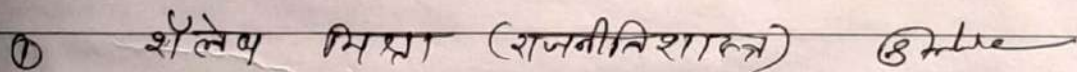 ① शैलेष मिश्रा (राजनीतिशास्त्र)